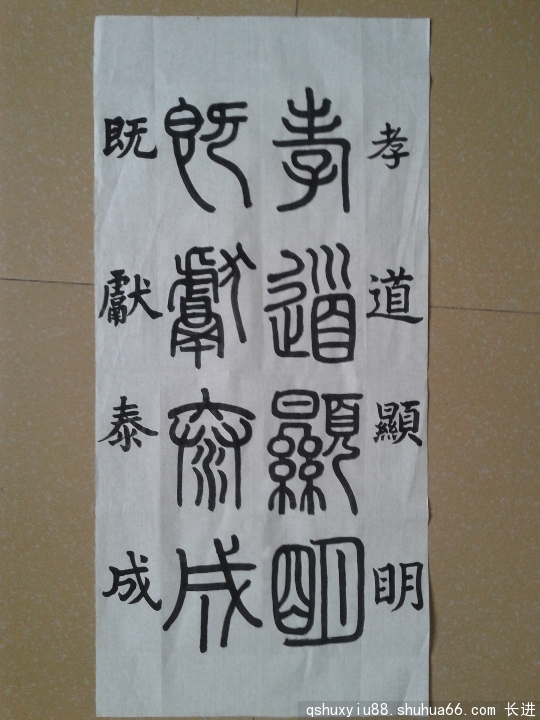 孝道顯明
孝道顯明
既獻泰成
既獻泰成
qshuxyiu88.shuhua66.com 长进